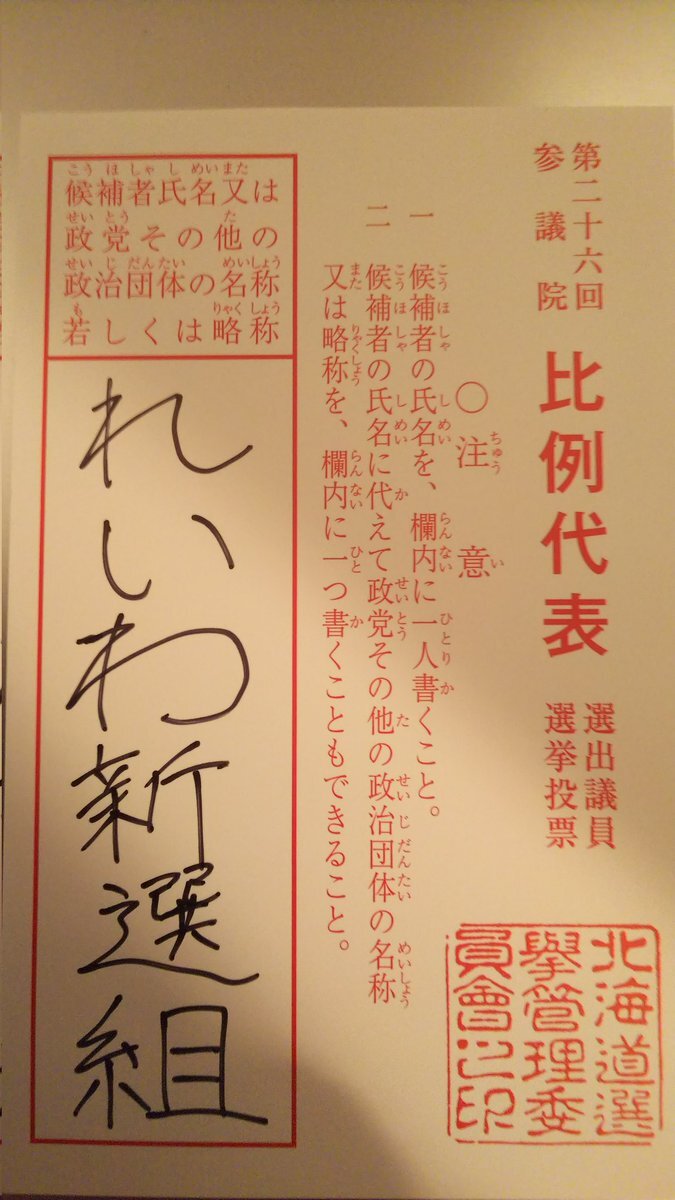 第二十六回
参議院
比例代表
選出議員
選挙投票
〇注意
一 候補者の氏名を、欄内に一人書くこと。
二 候補者の氏名に代えて政党その他の政治団体の名称
又は略称を、欄内に一つ書くこともできること。
候補者氏名又は
政党その他の
政治団体の名称
若しくは略称
れいわ新選組
北海道選
擧管理委
員會之印